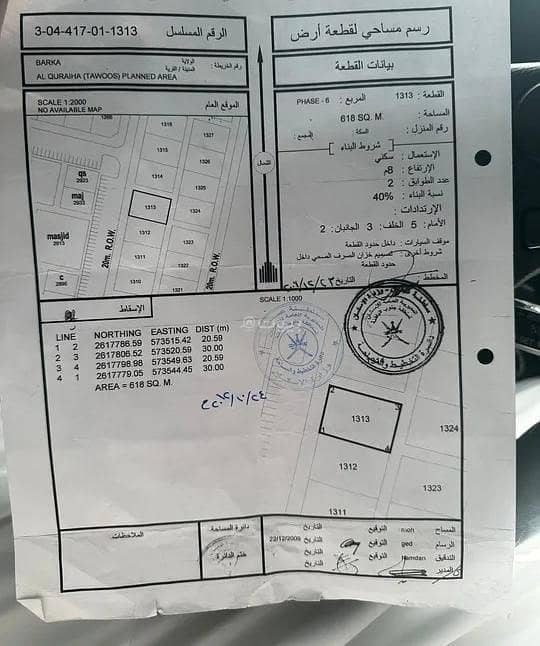 رسم مساحي لقطعة أرض
الرقم المسلسل 3-04-417-01-1313
بيانات القطعة
BARKA الولاية
رقم الخريطة: المدينة / القرية
AL QURAIHA (TAWOOS) PLANNED AREA
SCALE 1:2000
NO AVAILABLE MAP
الموقع العام
القطعة : 1313 المربع : PHASE - 6
المساحة : 618 SQ. M.
رقم المنزل : السكة : المجمع :
شروط البناء
الإستعمال : سكني
الإرتفاع : 8م
عدد الطوابق : 2
نسبة البناء : 40%
الإرتدادات :
الأمام: 5 الخلف: 3 الجانبان: 2
موقف السيارات : داخل حدود القطعة
شروط أخرى : تصميم خزان الصرف الصحي داخل
حدود القطعة
المخطط : التاريخ
الشمال
1316
1327
1315
1326
1314
1325
1313
1324
1312
1311
1310
20m. R.O.W.
20m. R.O.W.
qs
2923
maj
2933
masjid
2913
c
2896
الإسقاط
SCALE 1:1000
LINE NORTHING EASTING DIST (m)
1 2 2617786.59 573515.42 20.59
2 3 2617806.52 573520.59 30.00
3 4 2617798.98 573549.63 20.59
4 1 2617779.05 573544.45 30.00
AREA = 618 SQ. M.
1313
1324
1312
1323
1311
الملاحظات
دائرة المساحة
ختم الدائرة
المساح meh التوقيع التاريخ
الرسام ged التوقيع التاريخ 22/12/2009
التدقيق hamdan التوقيع التاريخ
المدير التاريخ